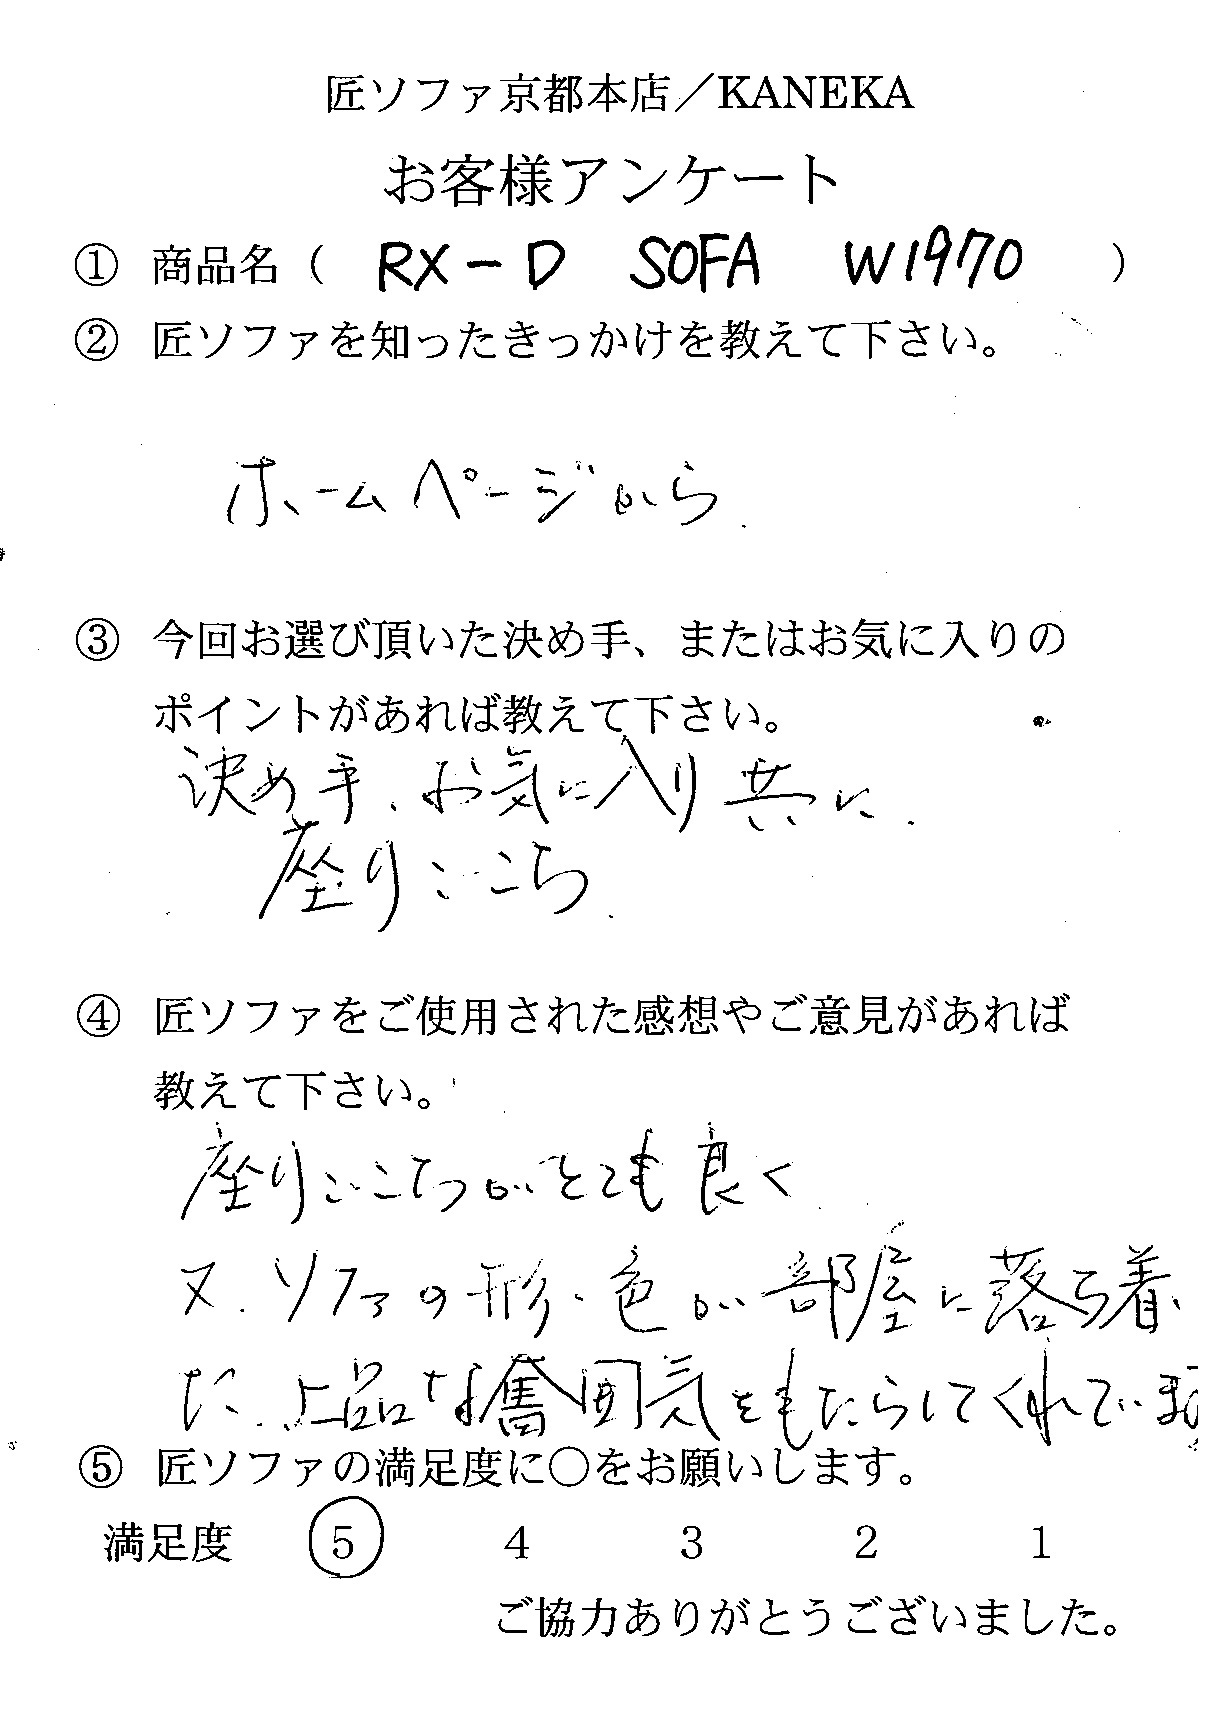 匠ソファ京都本店／KANEKA
お客様アンケート
① 商品名（ RX-D SOFA W1970 ）
② 匠ソファを知ったきっかけを教えて下さい。
ホームページから
③ 今回お選び頂いた決め手、またはお気に入りの
ポイントがあれば教えて下さい。
決め手、お気に入り共に、
座りごこち
④ 匠ソファをご使用された感想やご意見があれば
教えて下さい。
座りごこちがとても良く
又、ソファの形・色が部屋に落ち着
いた、上品な雰囲気をもたらしてくれていま
⑤ 匠ソファの満足度に○をお願いします。
満足度 5 4 3 2 1
ご協力ありがとうございました。